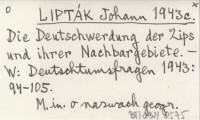 0 LIPTÁK Johann 1943c.
Die Deutschwerdung der Zips
und ihrer Nachbargebiete. –
W: Deutschtumsfragen 1943:
94-105.
M.in. o nazwach geogr.